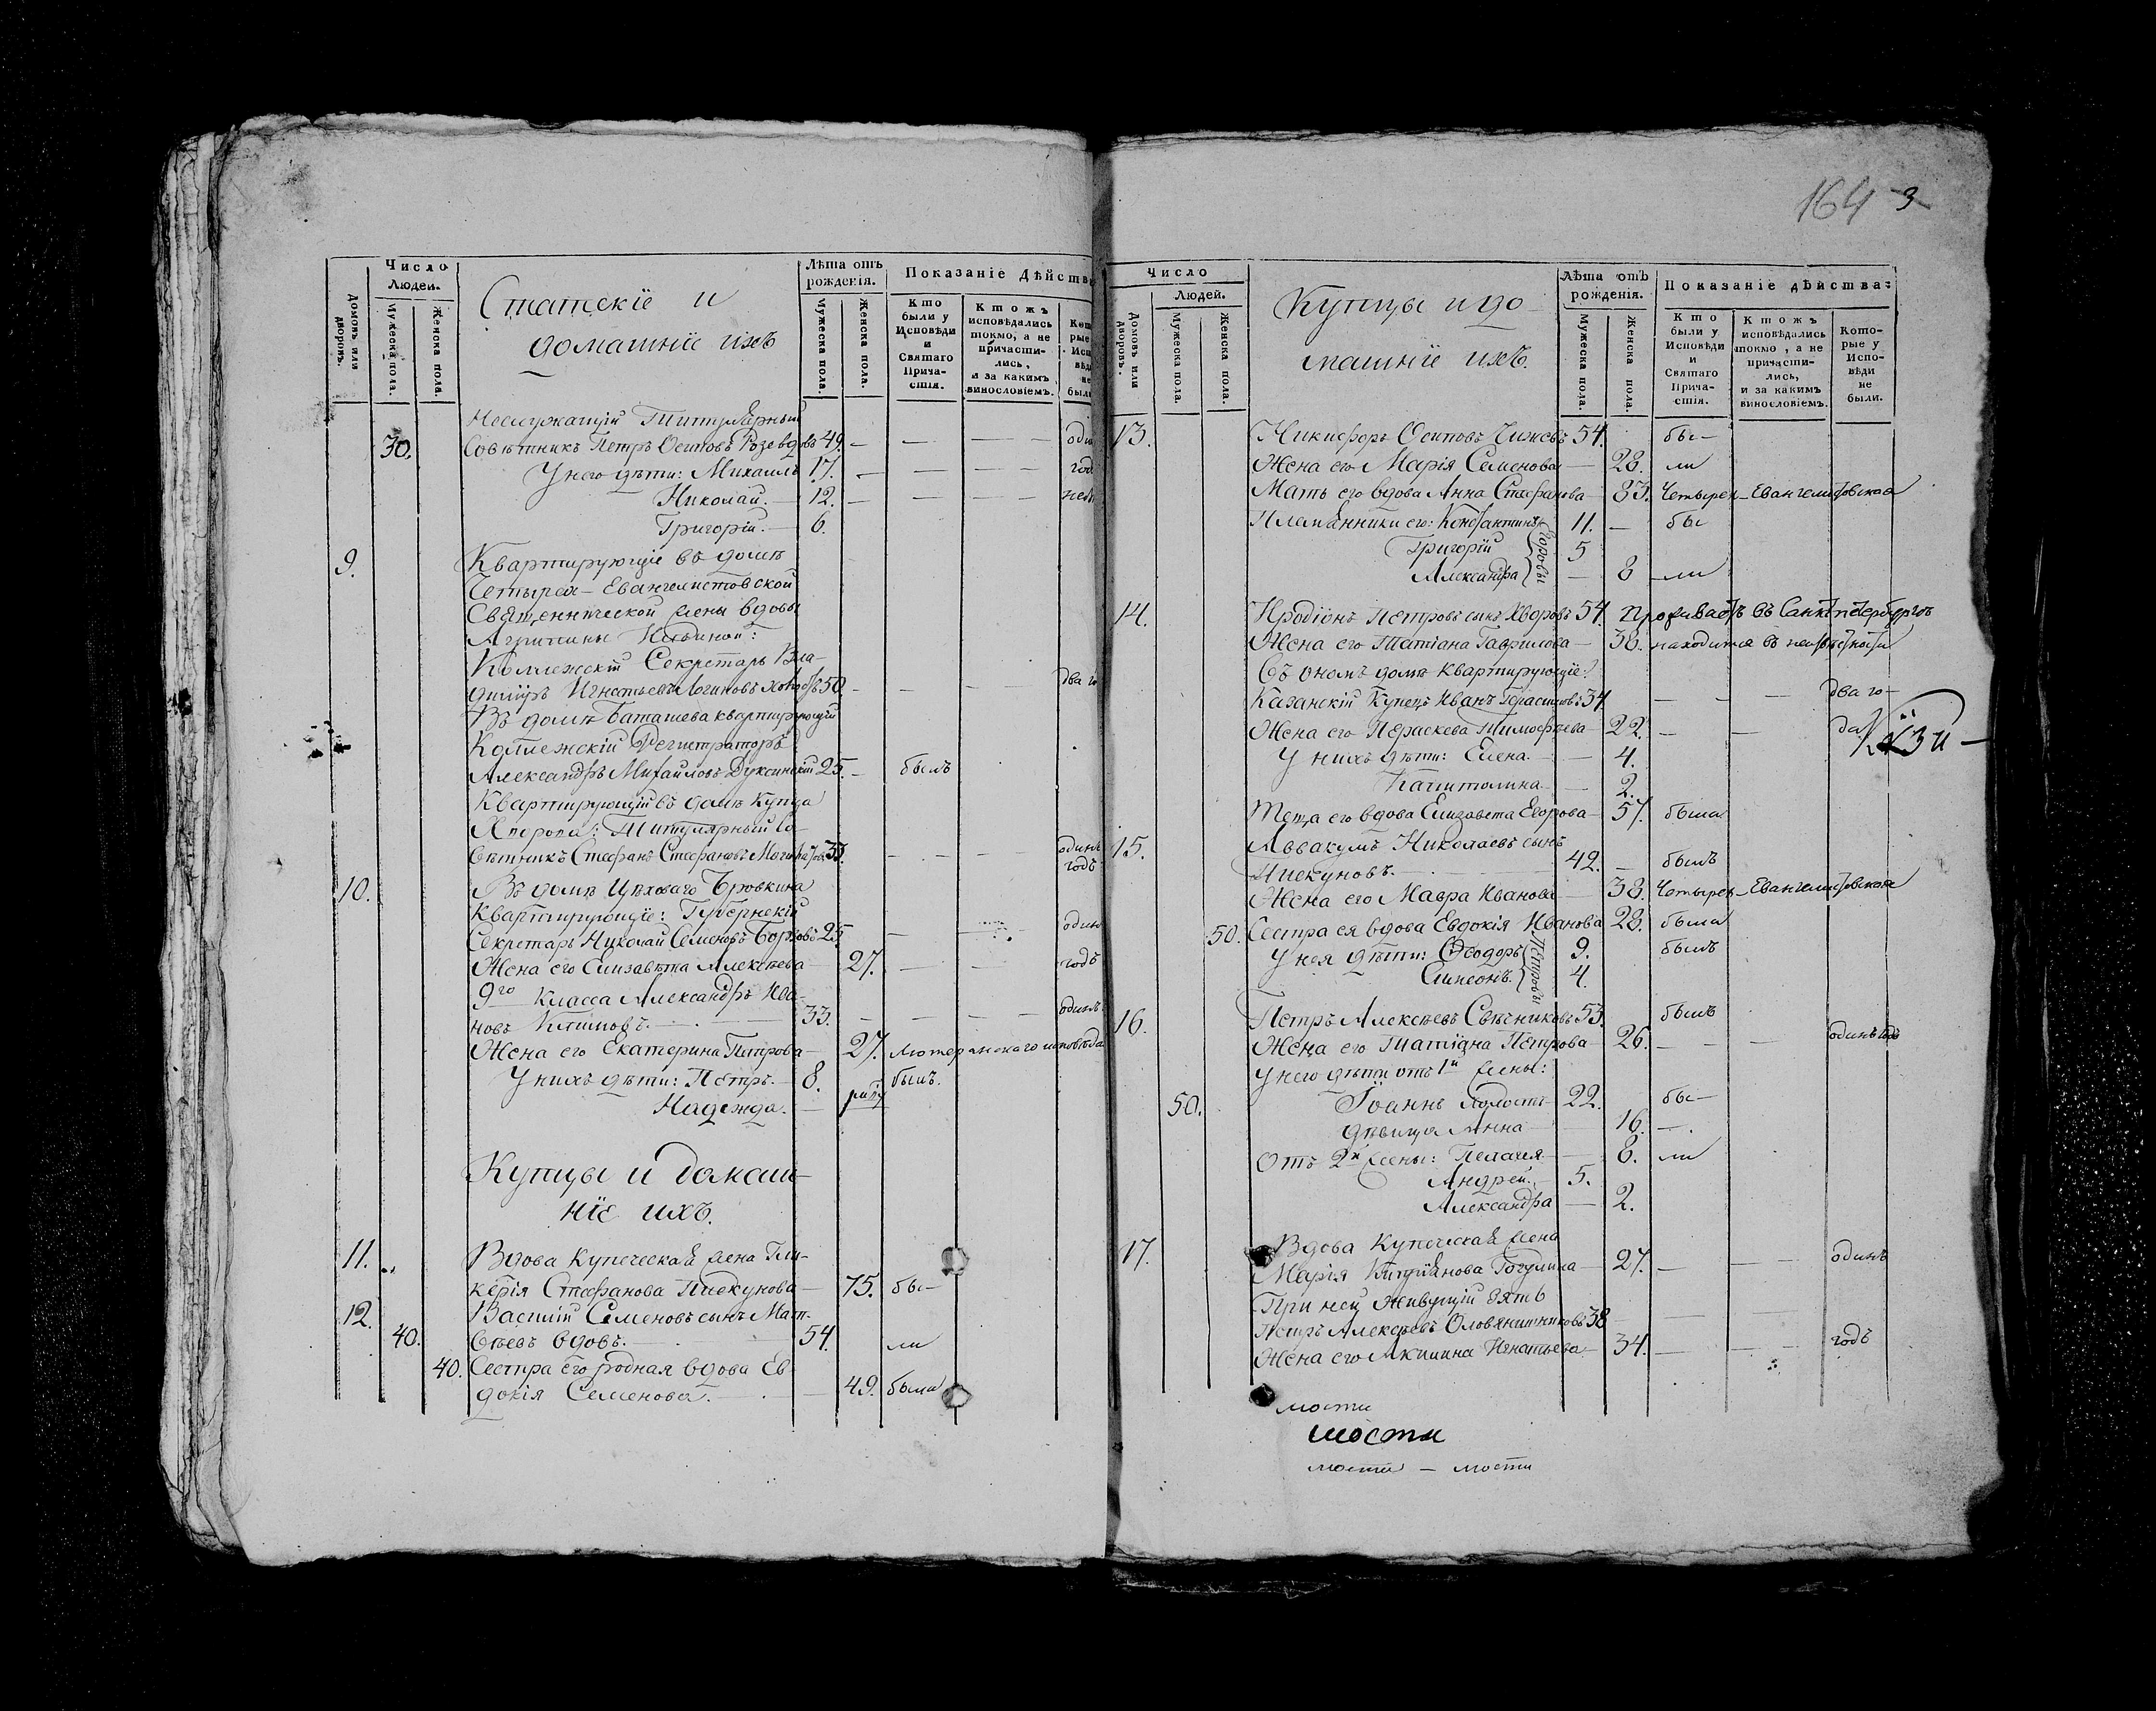 Число
Людей.
Домовъ или дворовъ.
Мужеска пола.
Женска пола.
Статскіе и
домашніе ихъ
Лѣта отъ
рожденія.
Мужеска пола.
Женска пола.
Показаніе дѣйств
Кто
были у
Исповѣди
и
Святаго
Прича-
стія.
Ктожъ
исповѣдались
токмо, а не
причасти-
лись,
и за какимъ
винословіемъ.
Неслужащій Титулярный
30. Совѣтникъ Петръ Осиповъ вдовъ 49. — — — —
У него дѣти: Михаилъ 17. — — — —
Николай. — 12. — — — —
Григорій. — 6.
9. Квартирующіе въ домѣ
Четырех-Евангелистовской
Священнической жены вдовы
Агрипины Ильиной:
Коллежскій Секретарь Вла-
димиръ Игнатьевъ Логиновъ 50. — — — два го
Въ домѣ Баташева квартирующій
Коллежскій Регистраторъ
Александръ Михайловъ 25. — былъ
Квартирующій въ домѣ Купца
Титулярный Со-
вѣтникъ Стефанъ Стефановъ 33. — — — одинъ
годъ
10. Въ домѣ Цѣховаго Бровкина
Квартирующіе: Губернскій
Секретарь Николай Семеновъ 25. — — одинъ
Жена его Елизавета Алексѣева — 27. — — годъ
9го класса Александръ Ива-
новъ Климовъ. — 33. — — — — одинъ
Жена его Екатерина Петрова — 27. Лютеранскаго исповѣда
У нихъ дѣти: Петръ. — 8. былъ.
Надежда. —
Купцы и домаш-
ніе ихъ.
11. Вдова купеческая жена Гли-
керія Стефанова Пискунова — 75. бы-
12. Василій Семеновъ сынъ Мат-
40. вѣевъ вдовъ. — 54. ли
40. Сестра его родная вдова Ев-
докія Семенова. — 49. была
164 3
Число
Людей.
Домовъ или дворовъ.
Мужеска пола.
Женска пола.
Купцы и до-
машніе ихъ.
Лѣта отъ
рожденія.
Мужеска пола.
Женска пола.
Показаніе дѣйства:
Кто
были у
Исповѣди
и
Святаго
Прича-
стія.
Ктожъ
исповѣдались
токмо, а не
причасти-
лись,
и за какимъ
винословіемъ.
Кото-
рые у
Испо-
вѣди
не
были.
13. Никифоръ Осиповъ Чижовъ 54. бы-
Жена его Марія Семенова — 28. ли
Мать его вдова Анна Стефанова — 83. Четырех-Евангелистовская
Племянники его: Константинъ 11. — бы
Григорій 5
Александра — 8 — ли
14. Иродіонъ Петровъ сынъ 54. Проживаетъ въ Санктпетербургѣ
Жена его Татіана Гаврилова — 38. находится въ неизвѣстности
Въ ономъ домѣ квартирующіе:
Казанскій Купецъ Иванъ Герасимовъ 34. — — — два го-
Жена его Параскева Тимофѣева — 22. — — да
У нихъ дѣти: Елена. — 4.
Капитолина — 2.
Теща его вдова Елизавета Егорова — 57. была
15. Аввакумъ Николаевъ сынъ
Пискуновъ. — 42. — былъ
Жена его Мавра Иванова — 38. Четырех-Евангелистовская
50. Сестра ея вдова Евдокія Иванова 28. была
У нея дѣти: Ѳеодоръ 9. былъ
Симеонъ. 4.
Петровы
16. Петръ Алексѣевъ Свѣчниковъ 53. былъ
Жена его Татіана Петрова — 26. — — — одинъ годъ
У него дѣти отъ 1й жены:
50. Іоаннъ холостъ — 22. бы-
дѣвица Анна — 16. —
Отъ 2й жены: Пелагея — 8. ли
Андрей. — 5.
Александра — 2.
17. Вдова Купеческая жена
Марія Кипріянова — 27. — — — одинъ
При ней живущій зять
Петръ Алексѣевъ Оловянишниковъ 38 — —
Жена его Акилина Игнатьева — 34. — — — годъ
мости
мости
мости — мости